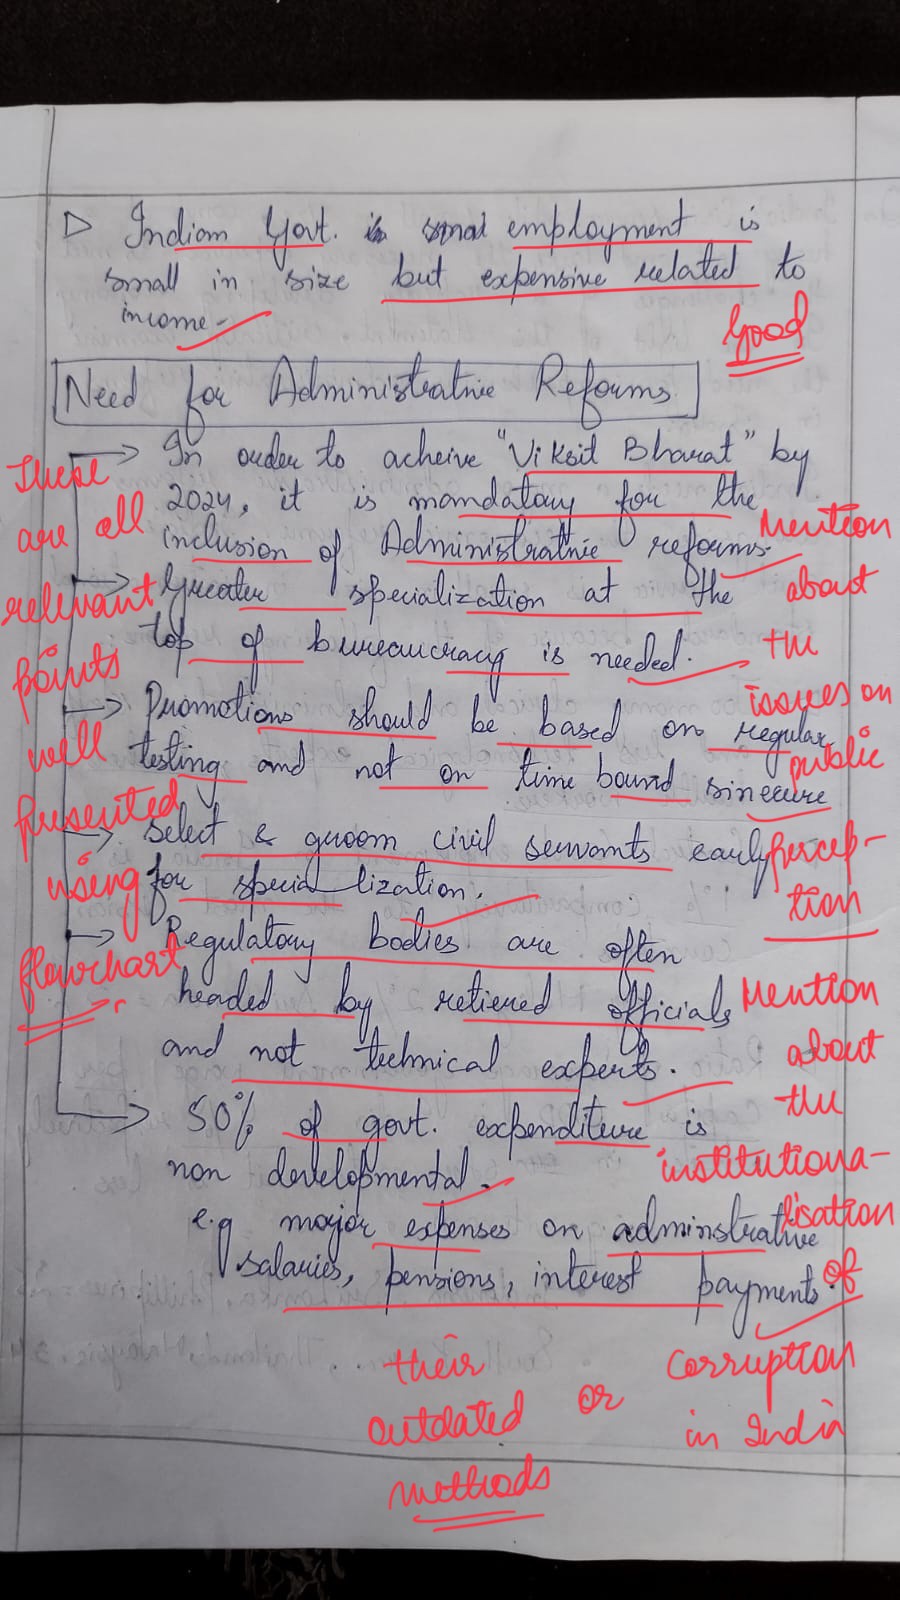 ▷ Indian Govt. is smal employment is
small in size but expensive related to
income-
Good
Need for Administratnie Reforms
→ In order to acheive "Viksit Bharat" by
2024, it is mandatory for the
inclusion of Administratnie reforms.
→ Greater specialization at the
top of bureaucracy is needed.
→ Promotions should be based on regular
testing and not on time bound sinecure
→ Select & groom civil servants early
for special lization.
→ Regulatory bodies are often
headed by retiered officials
and not technical experts.
→ 50% of govt. expenditure is
non developmental.
e.g major expenses on adminstrative
salaries, pensions, interest payments.
These
are all
relevant
points
well
presented
using
flowchart
Mention
about
the
issues on
public
percep-
tion
Mention
about
the
institutiona-
lisation
of
corruption
in India
or
their
outdated
methods